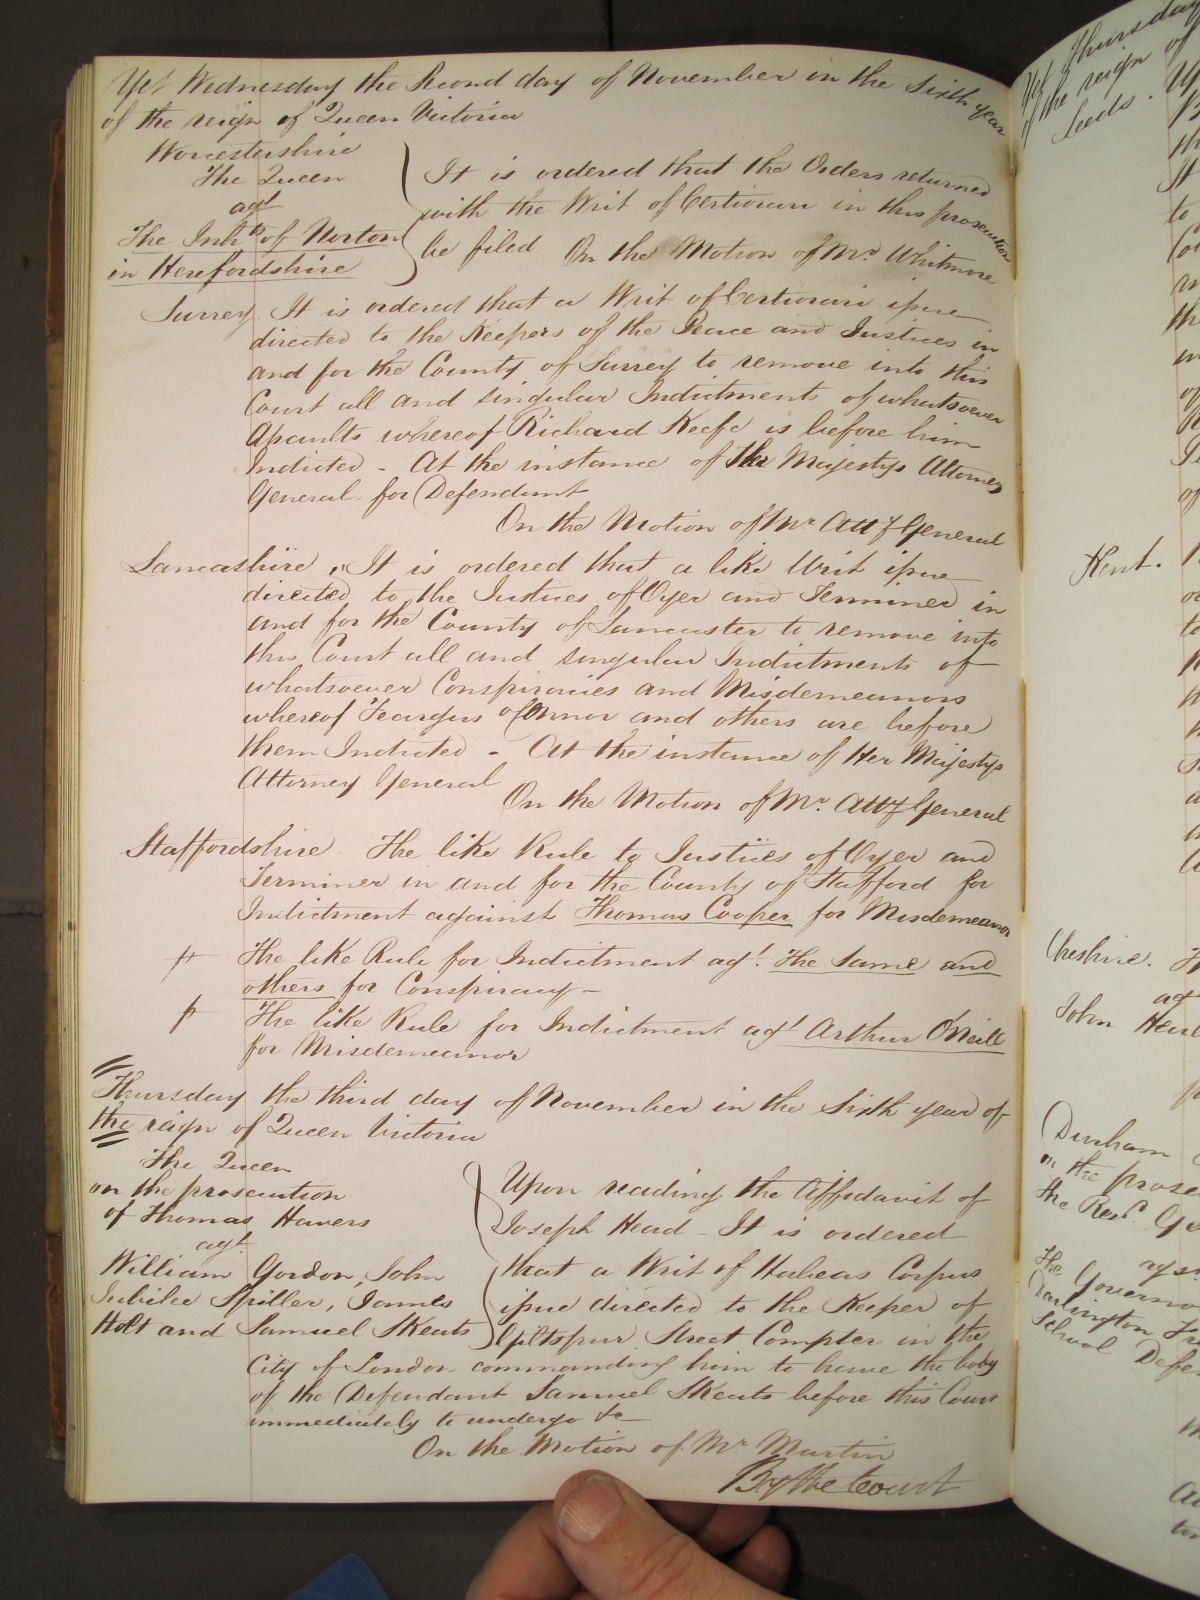 Yet Wednesday the Second day of November in the Sixth year
of the reign of Queen Victoria
Worcestershire
The Queen
agt
The Inhts of Norton
in Herefordshire
It is ordered that the Orders returned
with the Writ of Certiorari in this prosecution
be filed On the Motion of Mr. Whitmore
Surrey It is ordered that a Writ of Certiorari issue
directed to the Keepers of the Peace and Justices in
and for the County of Surrey to remove into this
Court all and singular Indictments of whatsoever
Assaults whereof Richard Keefe is before him
Indicted - At the instance of Her Majestys Attorney
General for Defendant
On the Motion of Mr Atty General
Lancashire, It is ordered that a like Writ issue
directed to the Justices of Oyer and Terminer in
and for the County of Lancaster to remove into
this Court all and singular Indictments of
whatsoever Conspiracies and Misdemeanors
whereof Feargus oConnor and others are before
them Indicted - At the instance of Her Majestys
Attorney General
On the Motion of Mr. Atty General
Staffordshire The like Rule to Justices of Oyer and
Terminer in and for the County of Stafford for
Indictment against Thomas Cooper for Misdemeanor
The like Rule for Indictment agt. The Same and
others for Conspiracy -
The like Rule for Indictment agt Arthur O'Neill
for Misdemeanor
Thursday the third day of November in the Sixth year of
the reign of Queen Victoria
The Queen
on the prosecution
of Thomas Havers
agt.
William Gordon, John
Jubilee Spiller, James
Holt and Samuel Skeats
Upon reading the Affidavit of
Joseph Head - It is ordered
that a Writ of Habeas Corpus
issue directed to the Keeper of
Giltspur Street Compter in the
City of London commanding him to have the body
of the Defendant Samuel Skeats before this Court
immediately to undergo &c
On the Motion of Mr. Martin
By the Court
Yet Thursday
of the reign of
Leeds.
Kent.
Cheshire.
agt
John
Durham
on the prose
the Revd. Ge
agst
The Governo
Darlington
School Defe